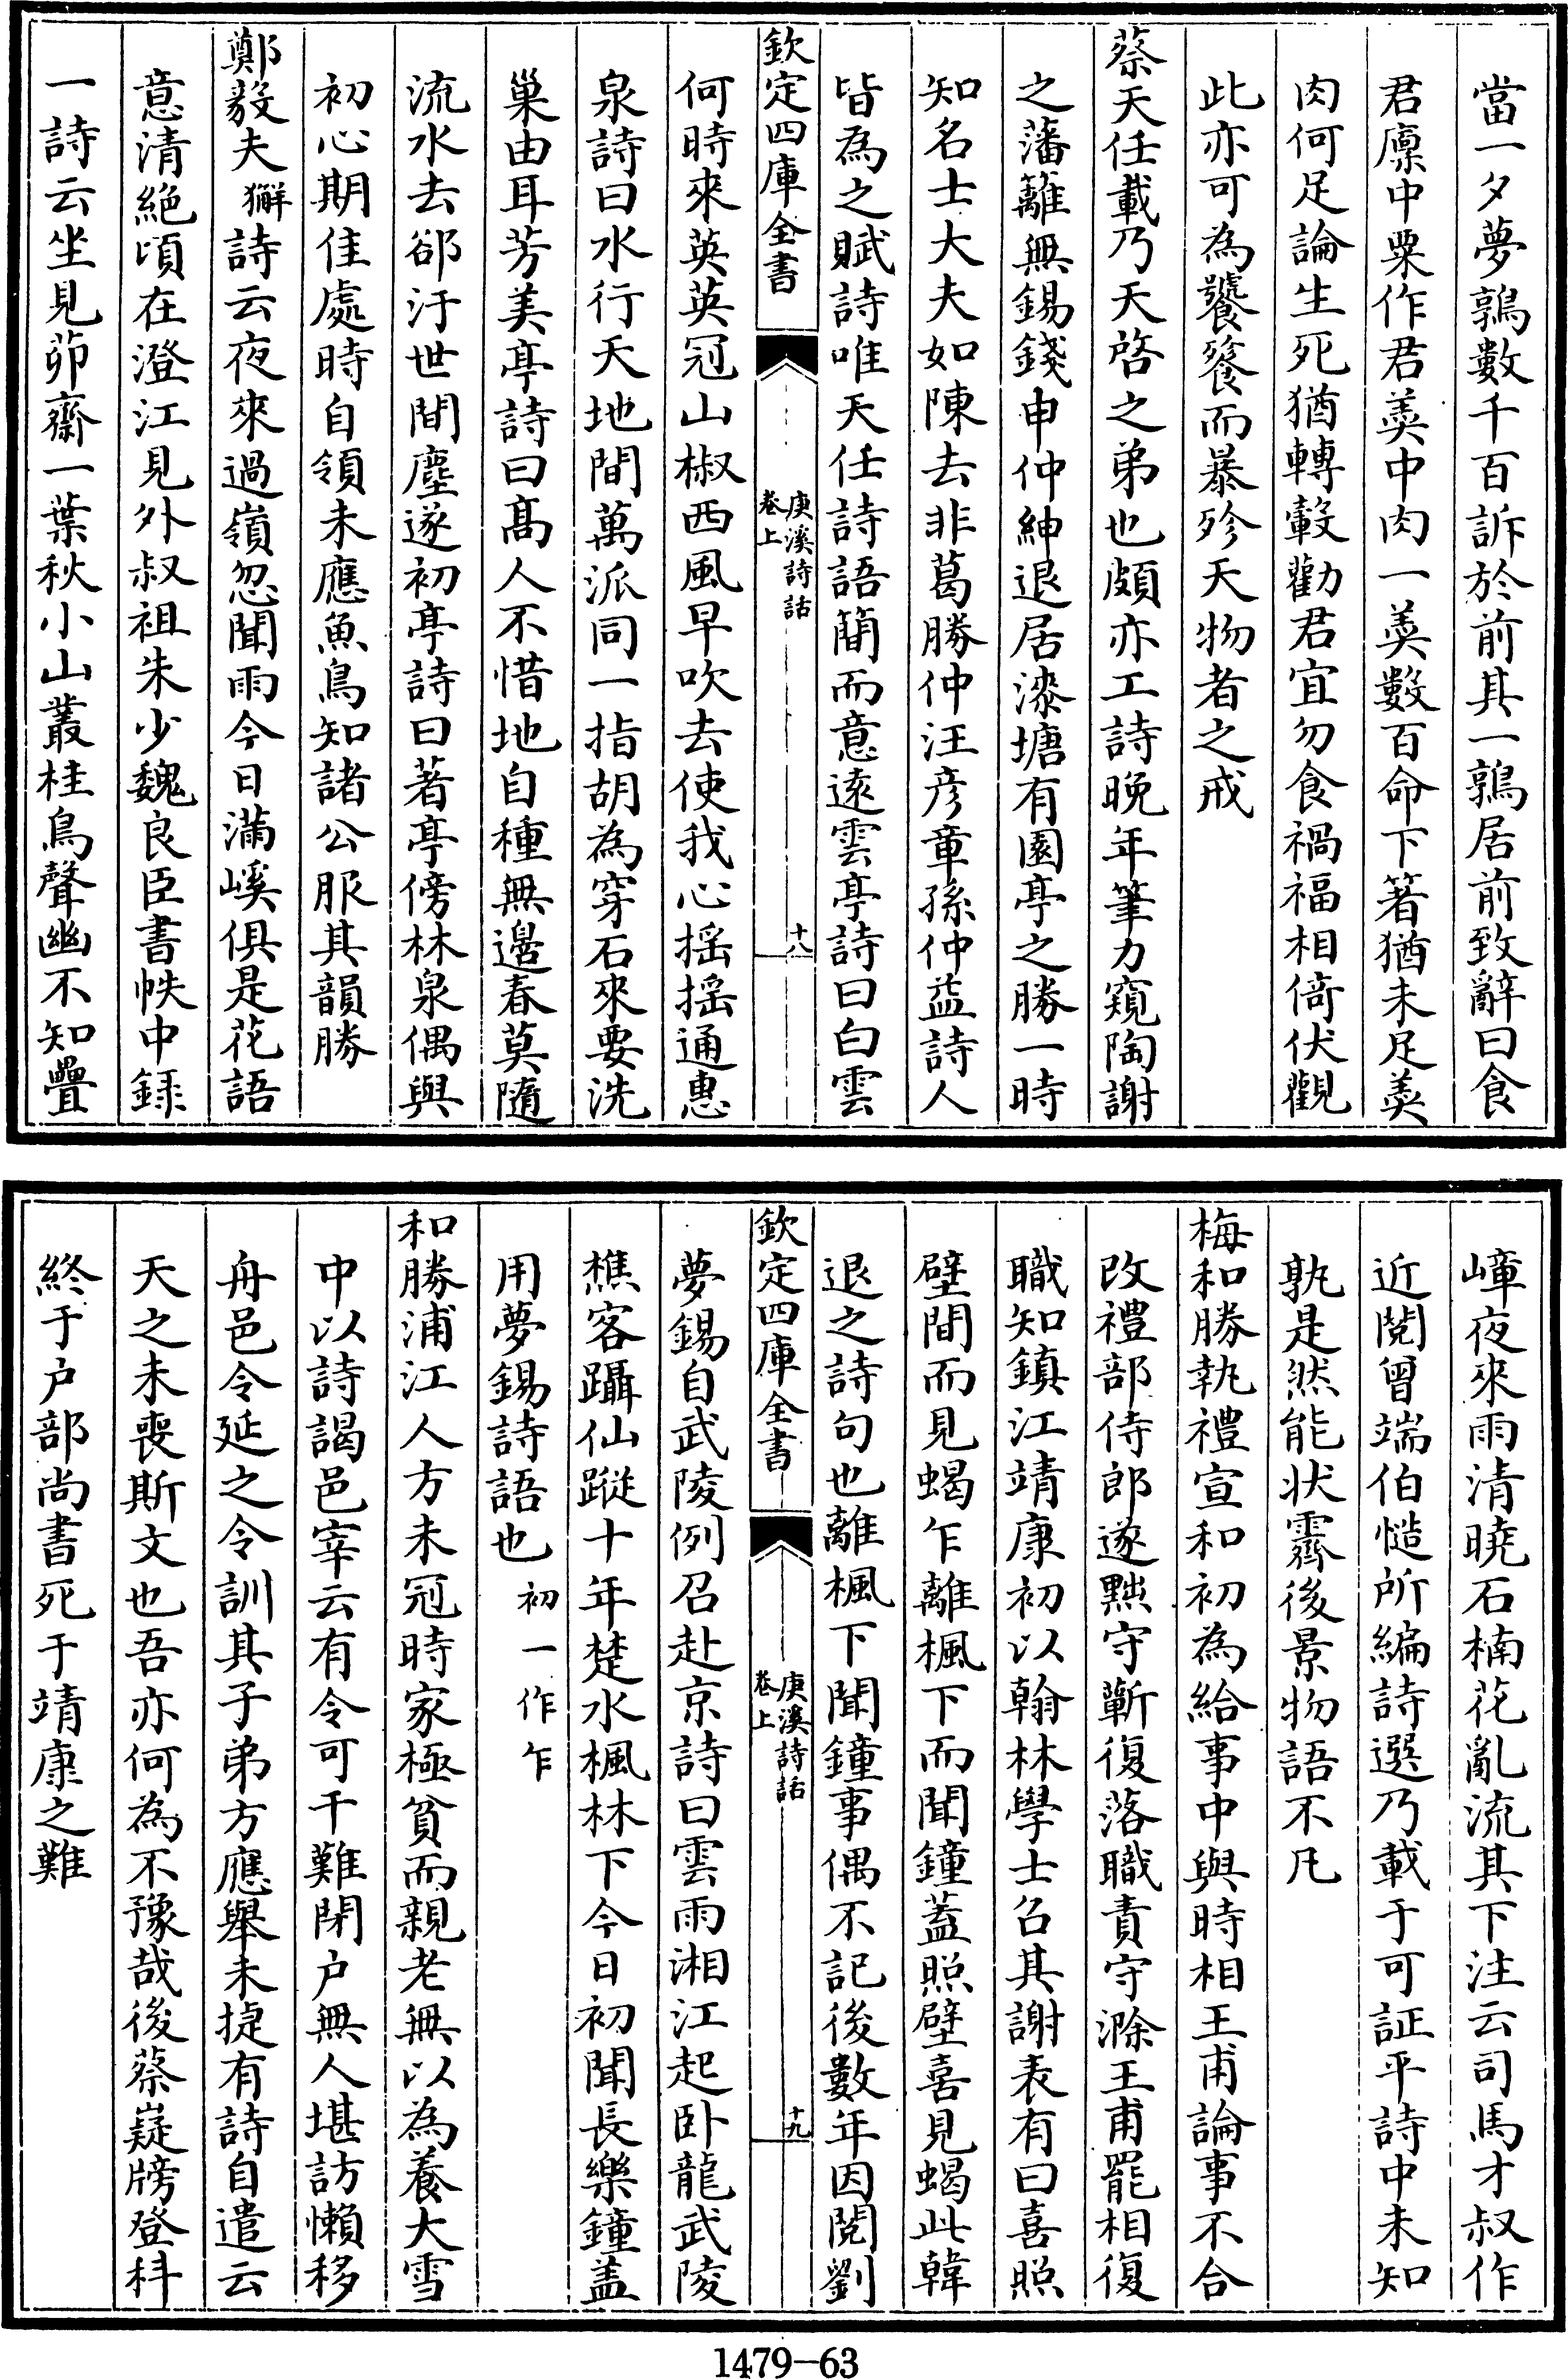 當一夕夢鶉數千百訴於前其一鶉居前致辭曰食
君廪中粟作君羮中肉一羮數百命下箸猶未足羮
肉何足論生死猶轉轂勸君宜勿食禍福相倚伏觀
此亦可為饕餮而暴殄天物者之戒
蔡天任載乃天啓之弟也頗亦工詩晩年筆力窺陶謝
之藩籬無錫錢申仲紳退居漆塘有園亭之勝一時
知名士大夫如陳去非葛勝仲汪彦章孫仲益詩人
皆為之賦詩唯天任詩語簡而意遠雲亭詩曰白雲
欽定四庫全書
庚溪詩話
卷上
十八
何時來英英冠山椒西風早吹去使我心揺揺通惠
泉詩曰水行天地間萬派同一指胡為穿石來要洗
巢由耳芳美亭詩曰髙人不惜地自種無邉春莫隨
流水去卻汙世間塵遂初亭詩曰著亭傍林泉偶與
初心期佳處時自領未應魚鳥知諸公服其韻勝
鄭毅夫獬詩云夜來過嶺忽聞雨今日滿溪俱是花語
意清絶頃在澄江見外叔祖朱少魏良臣書帙中録
一詩云坐見茆齋一葉秋小山叢桂鳥聲幽不知疊
嶂夜來雨清曉石楠花亂流其下注云司馬才叔作
近閲曾端伯慥所編詩選乃載于可証平詩中未知
孰是然能状霽後景物語不凡
梅和勝執禮宣和初為給事中與時相王甫論事不合
改禮部侍郎遂黜守蘄復落職責守滁王甫罷相復
職知鎮江靖康初以翰林學士召其謝表有曰喜照
壁間而見蝎乍離楓下而聞鐘蓋照壁喜見蝎此韓
退之詩句也離楓下聞鐘事偶不記後數年因閲劉
欽定四庫全書
庚溪詩話
卷上
十九
夢錫自武陵例召赴京詩曰雲雨湘江起卧龍武陵
樵客躡仙蹤十年楚水楓林下今日初聞長樂鐘盖
用夢錫詩語也初一作乍
和勝浦江人方未冠時家極貧而親老無以為養大雪
中以詩謁邑宰云有令可干難閉户無人堪訪懶移
舟邑令延之令訓其子弟方應舉未捷有詩自遣云
天之未喪斯文也吾亦何為不豫哉後蔡嶷牓登科
終于户部尚書死于靖康之難
1479-63